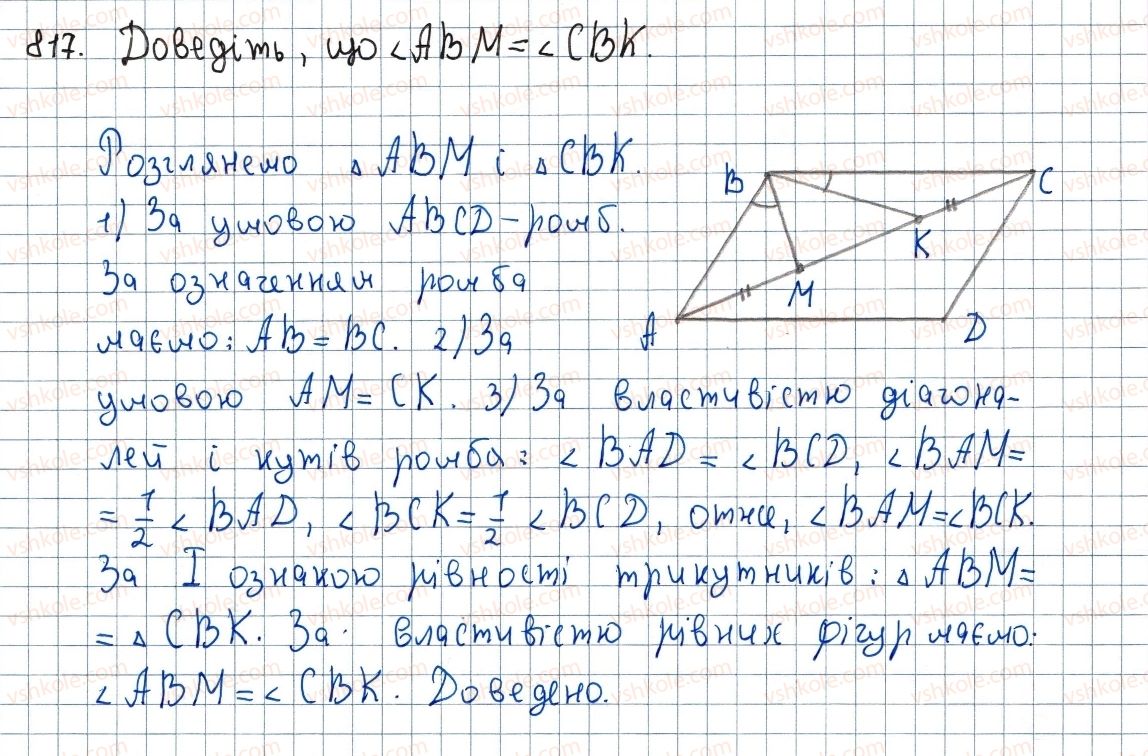 817. Доведіть, що <ABM = <CBK.
Розглянемо △ABM і △CBK.
1) За умовою ABCD - ромб.
За означенням ромба
маємо: AB = BC. 2) За
умовою AM = CK. 3) За властивістю діагона-
лей і кутів ромба: <BAD = <BCD, <BAM =
= 1/2 <BAD, <BCK = 1/2 <BCD, отже, <BAM = <BCK.
За I ознакою рівності трикутників: △ABM =
= △CBK. За властивістю рівних фігур маємо:
<ABM = <CBK. Доведено.
B
C
K
M
A
D
vshkole.com